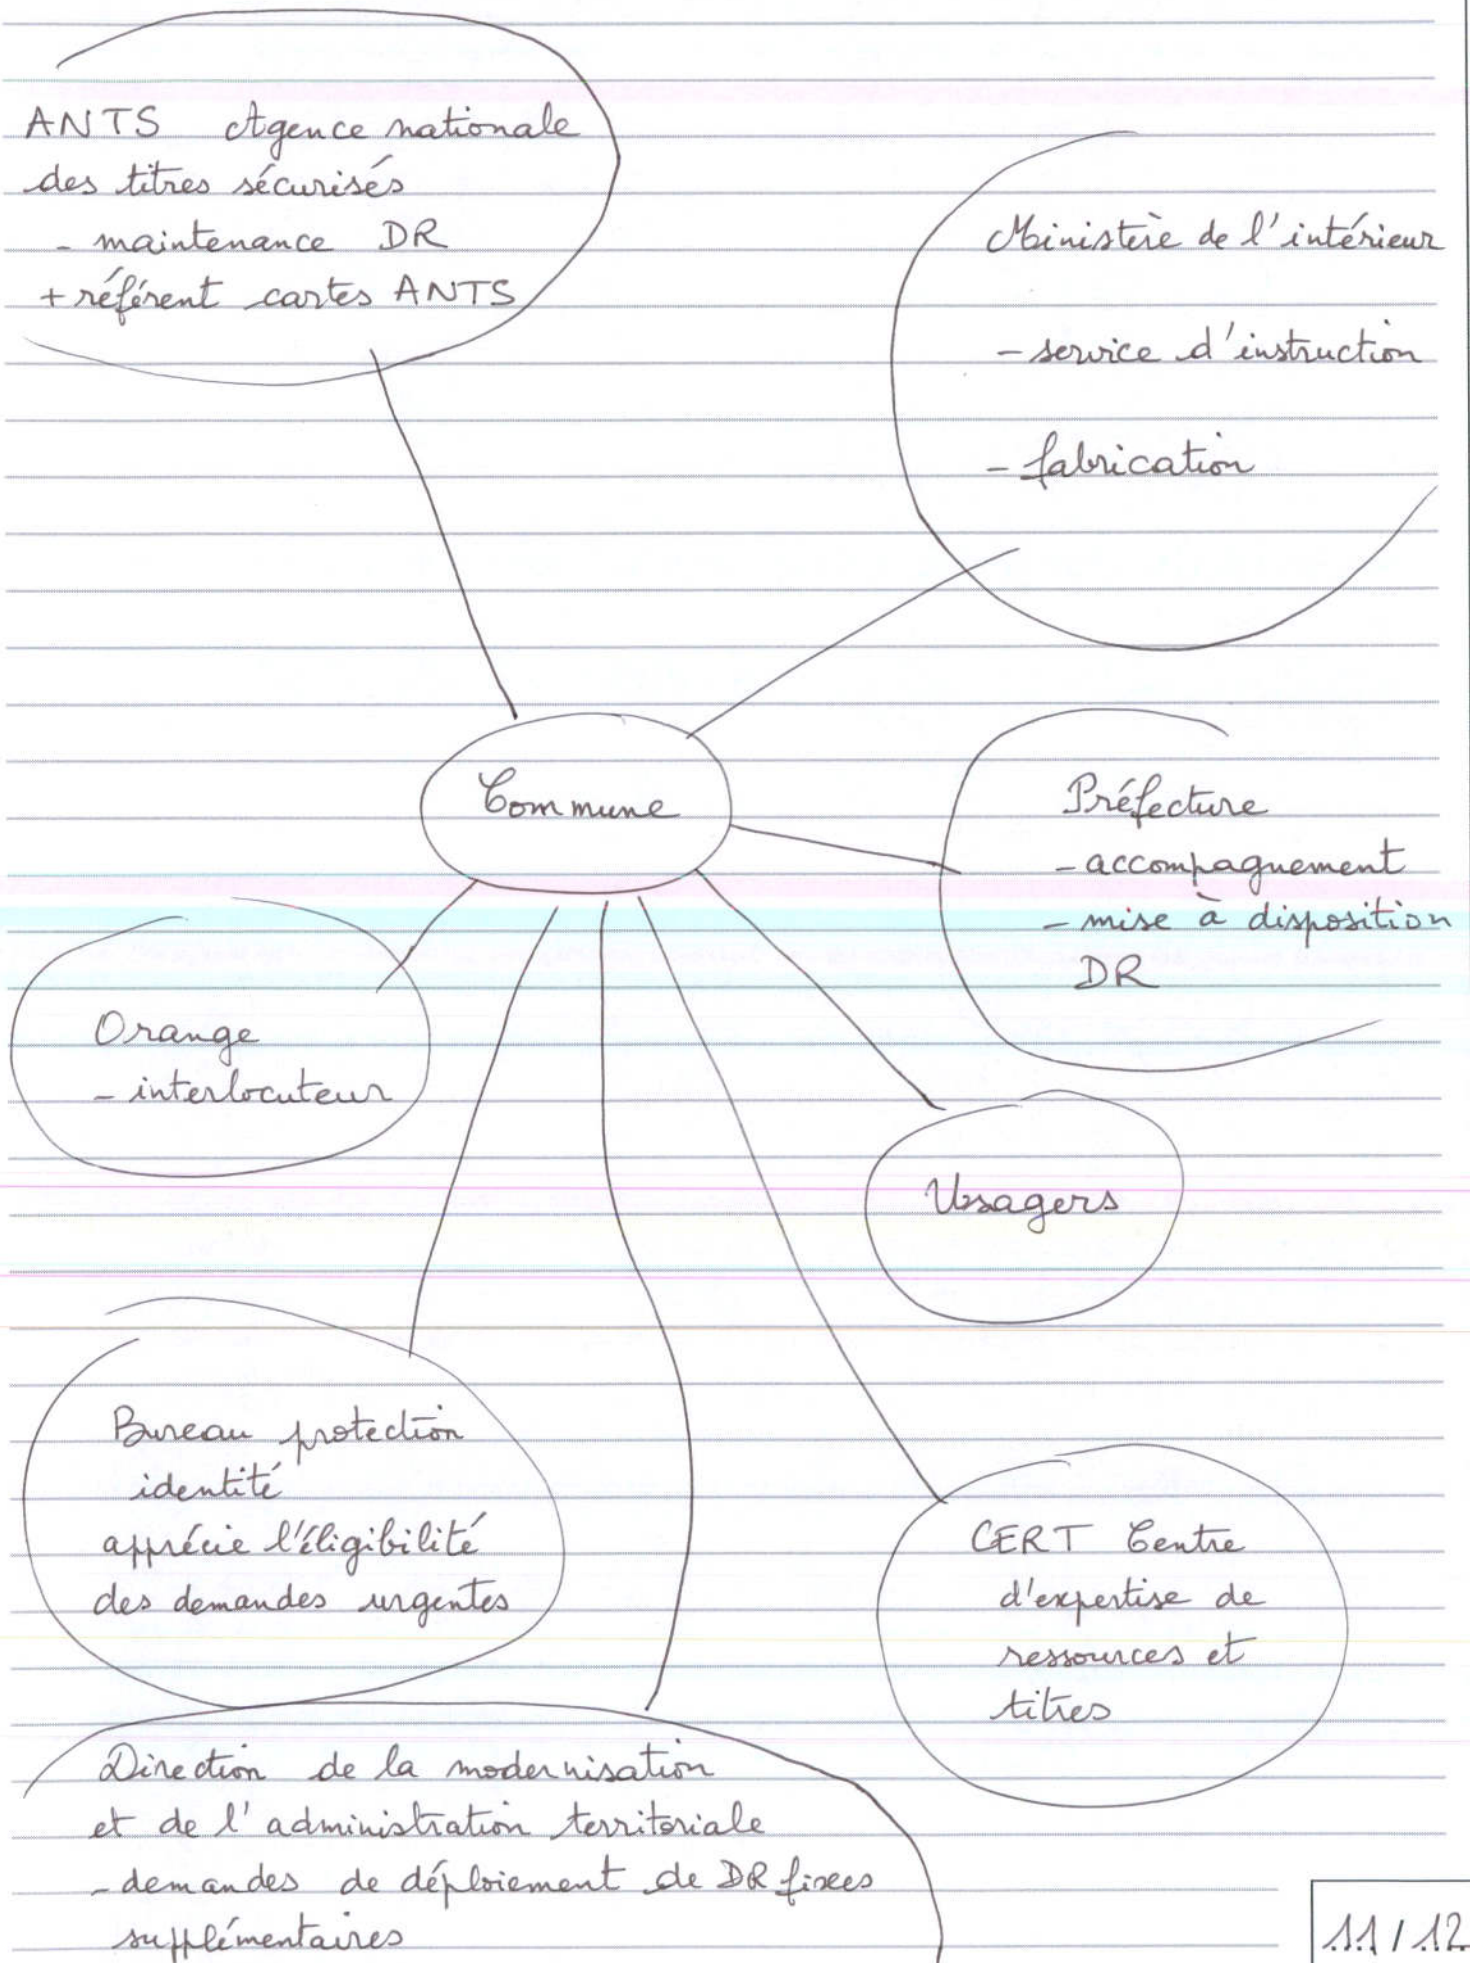 ANTS Agence nationale
des titres sécurisés
- maintenance DR
+ référent cartes ANTS
Ministère de l'intérieur
- service d'instruction
- fabrication
Commune
Préfecture
- accompagnement
- mise à disposition
DR
Orange
- interlocuteur
Usagers
Bureau protection
identité
apprécie l'éligibilité
des demandes urgentes
CERT Centre
d'expertise de
ressources et
titres
Direction de la modernisation
et de l'administration territoriale
- demandes de déploiement de DR fixees
supplémentaires
11/12